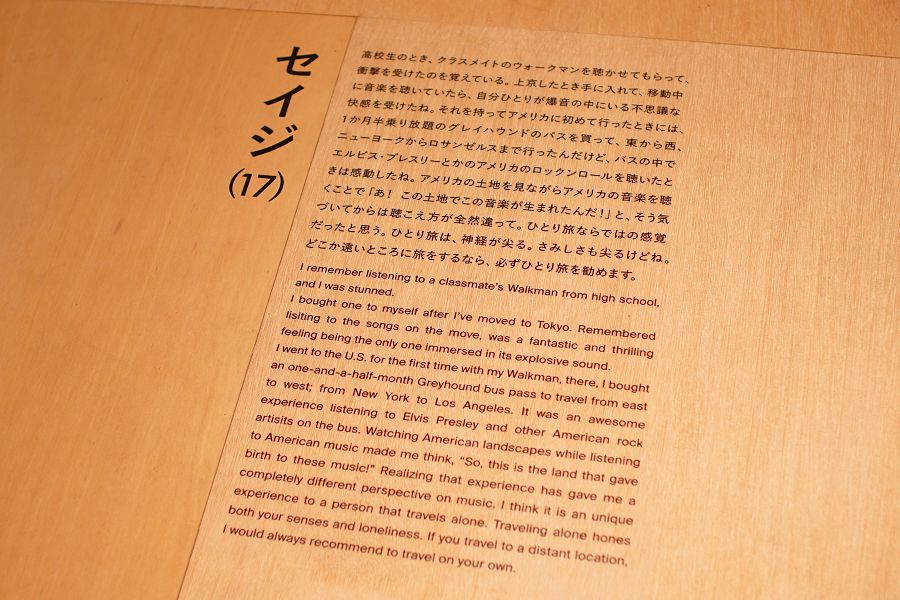 セイジ
(17)
高校生のとき、クラスメイトのウォークマンを聴かせてもらって、
衝撃を受けたのを覚えている。上京したとき手に入れて、移動中
に音楽を聴いていたら、自分ひとりが爆音の中にいる不思議な
快感を受けたね。それを持ってアメリカに初めて行ったときには、
1か月半乗り放題のグレイハウンドのバスを買って、東から西、
ニューヨークからロサンゼルスまで行ったんだけど、バスの中で
エルビス・プレスリーとかのアメリカのロックンロールを聴いたと
きは感動したね。アメリカの土地を見ながらアメリカの音楽を聴
くことで「あ！ この土地でこの音楽が生まれたんだ！」と、そう気
づいてからは聴こえ方が全然違って。ひとり旅ならではの感覚
だったと思う。ひとり旅は、神経が尖る。さみしさも尖るけどね。
どこか遠いところに旅をするなら、必ずひとり旅を勧めます。
I remember listening to a classmate's Walkman from high school,
and I was stunned.
I bought one to myself after I've moved to Tokyo. Remembered
lisiting to the songs on the move, was a fantastic and thrilling
feeling being the only one immersed in its explosive sound.
I went to the U.S. for the first time with my Walkman, there, I bought
an one-and-a-half-month Greyhound bus pass to travel from east
to west; from New York to Los Angeles. It was an awesome
experience listening to Elvis Presley and other American rock
artisits on the bus. Watching American landscapes while listening
to American music made me think, "So, this is the land that gave
birth to these music!" Realizing that experience has gave me a
completely different perspective on music. I think it is an unique
experience to a person that travels alone. Traveling alone hones
both your senses and loneliness. If you travel to a distant location,
I would always recommend to travel on your own.